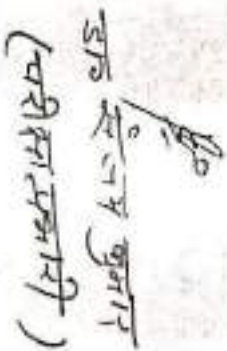 डॉ० संजय कुमार
(परीक्षा प्रभारी)